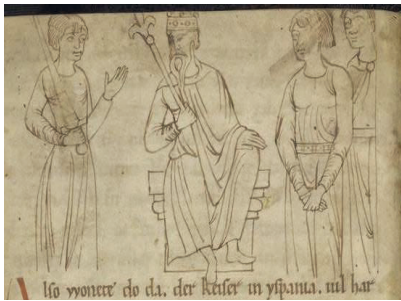 Also wonete do da. der keiser in yspania. uil har